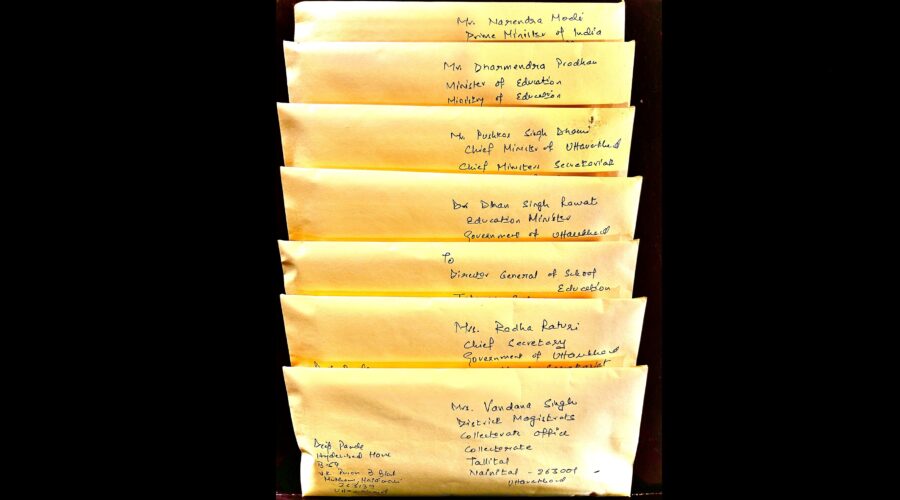 Mr. Narendra Modi
Prime Minister of India
Mr. Dharmendra Pradhan
Minister of Education
Ministry of Education
Mr. Pushkar Singh Dhami
Chief Minister of Uttarakhand
Chief Ministers Secretariat
Dr Dhan Singh Rawat
Education Minister
Government of Uttarakhand
To
Director General of School
Education
Mrs. Radha Raturi
Chief Secretary
Government of Uttarakhand
Secretariat
Mrs. Vandana Singh
District Magistrate
Collectorate Office
Collectorate
Tallital
Nainital - 263001
Uttarakhand
Hyderabad
Haldwani
263139
Uttarakhand